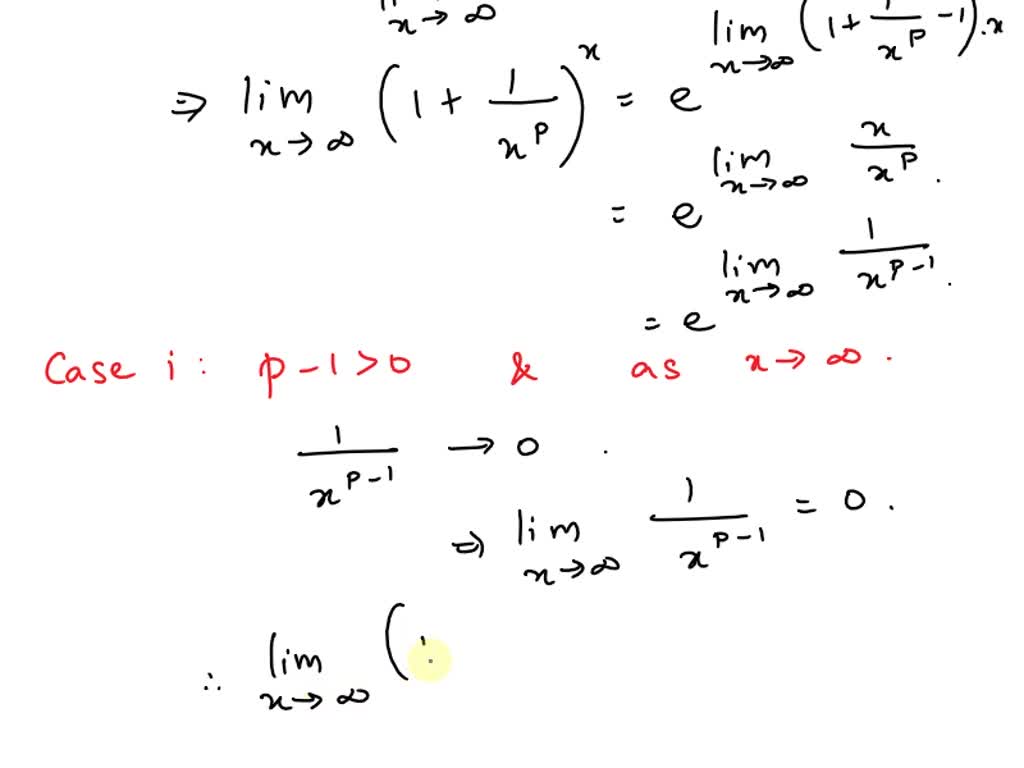 x → ∞
lim x → ∞ (1 + 1/x^p - 1).x
⇒ lim x → ∞ (1 + 1/x^p)^x = e
= e^lim x → ∞ x/x^p .
= e^lim x → ∞ 1/x^p-1 .
Case i : p - 1 > 0 & as x → ∞ .
1/x^p-1 → 0 .
⇒ lim x → ∞ 1/x^p-1 = 0 .
∴ lim x → ∞ (